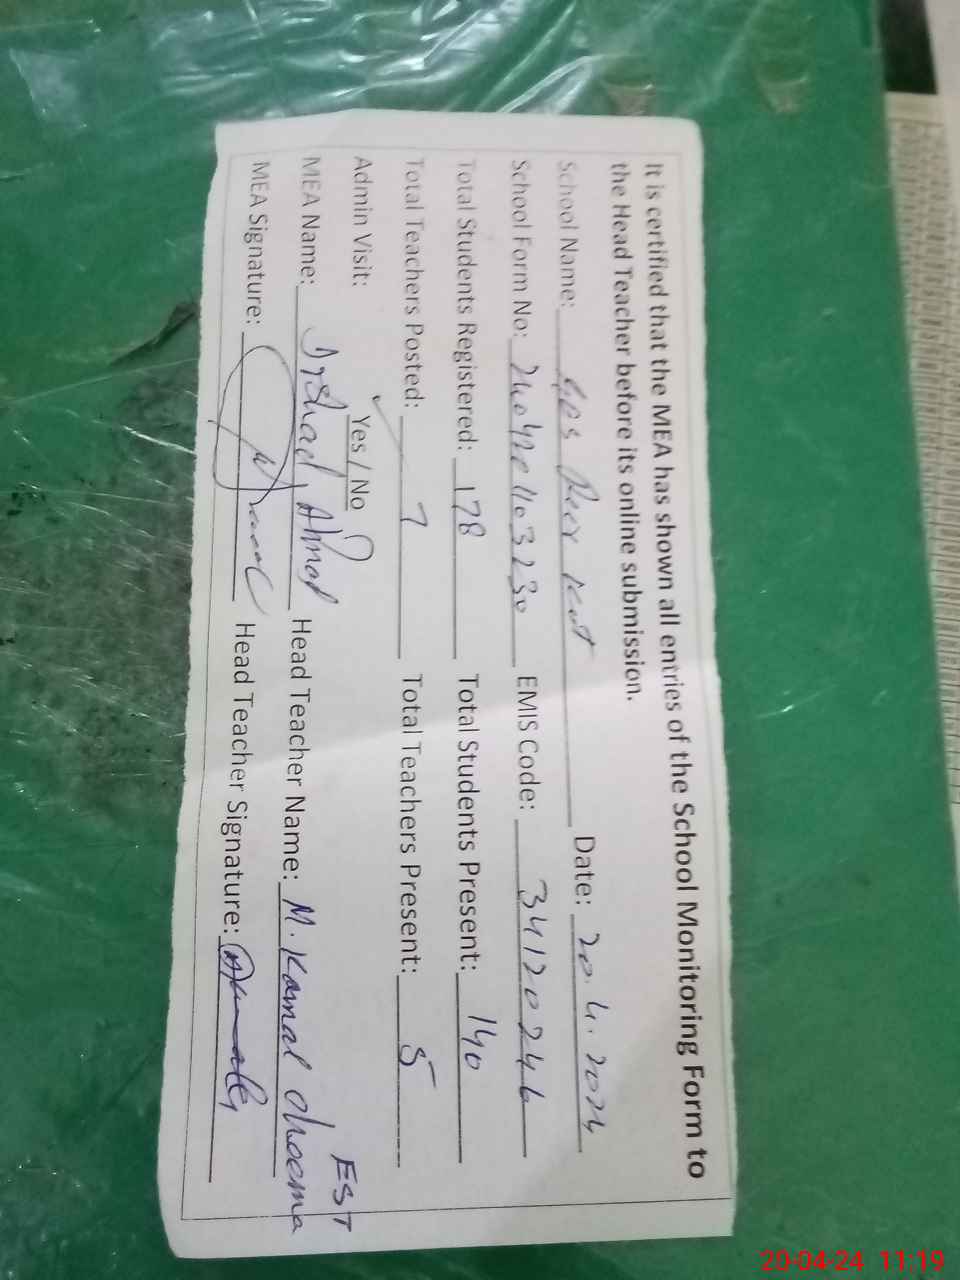 It is certified that the MEA has shown all entries of the School Monitoring Form to
the Head Teacher before its online submission.
School Name: GPS Kot Date: 20.4.2024
School Form No: EMIS Code: 34120246
Total Students Registered: 178 Total Students Present: 140
Total Teachers Posted: 7 Total Teachers Present: 5
Admin Visit: Yes / No EST
MEA Name: Irshad Ahmad Head Teacher Name: M. Kamal Cheema
MEA Signature: Head Teacher Signature:
20-04-24 11:19